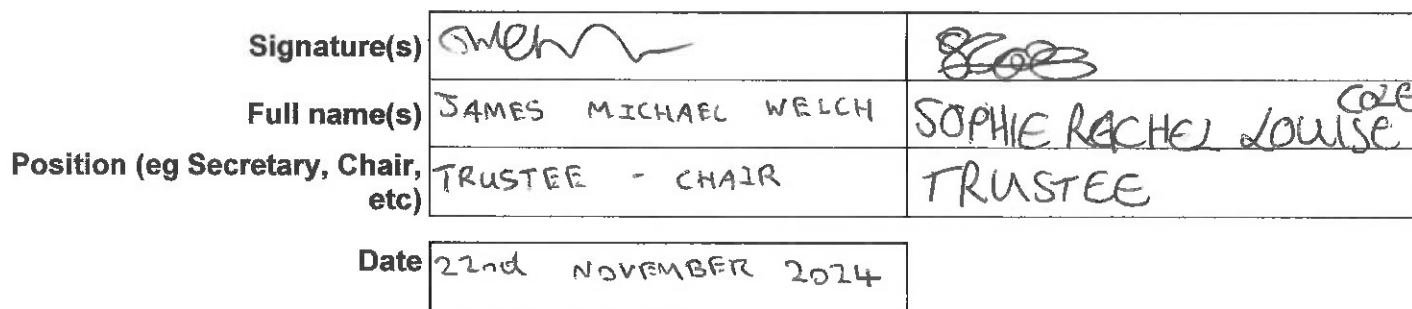 Signature(s)
Full name(s) JAMES MICHAEL WELCH SOPHIE RACHEL LOUISE COZE
Position (eg Secretary, Chair, TRUSTEE - CHAIR TRUSTEE
etc)
Date 22nd NOVEMBER 2024